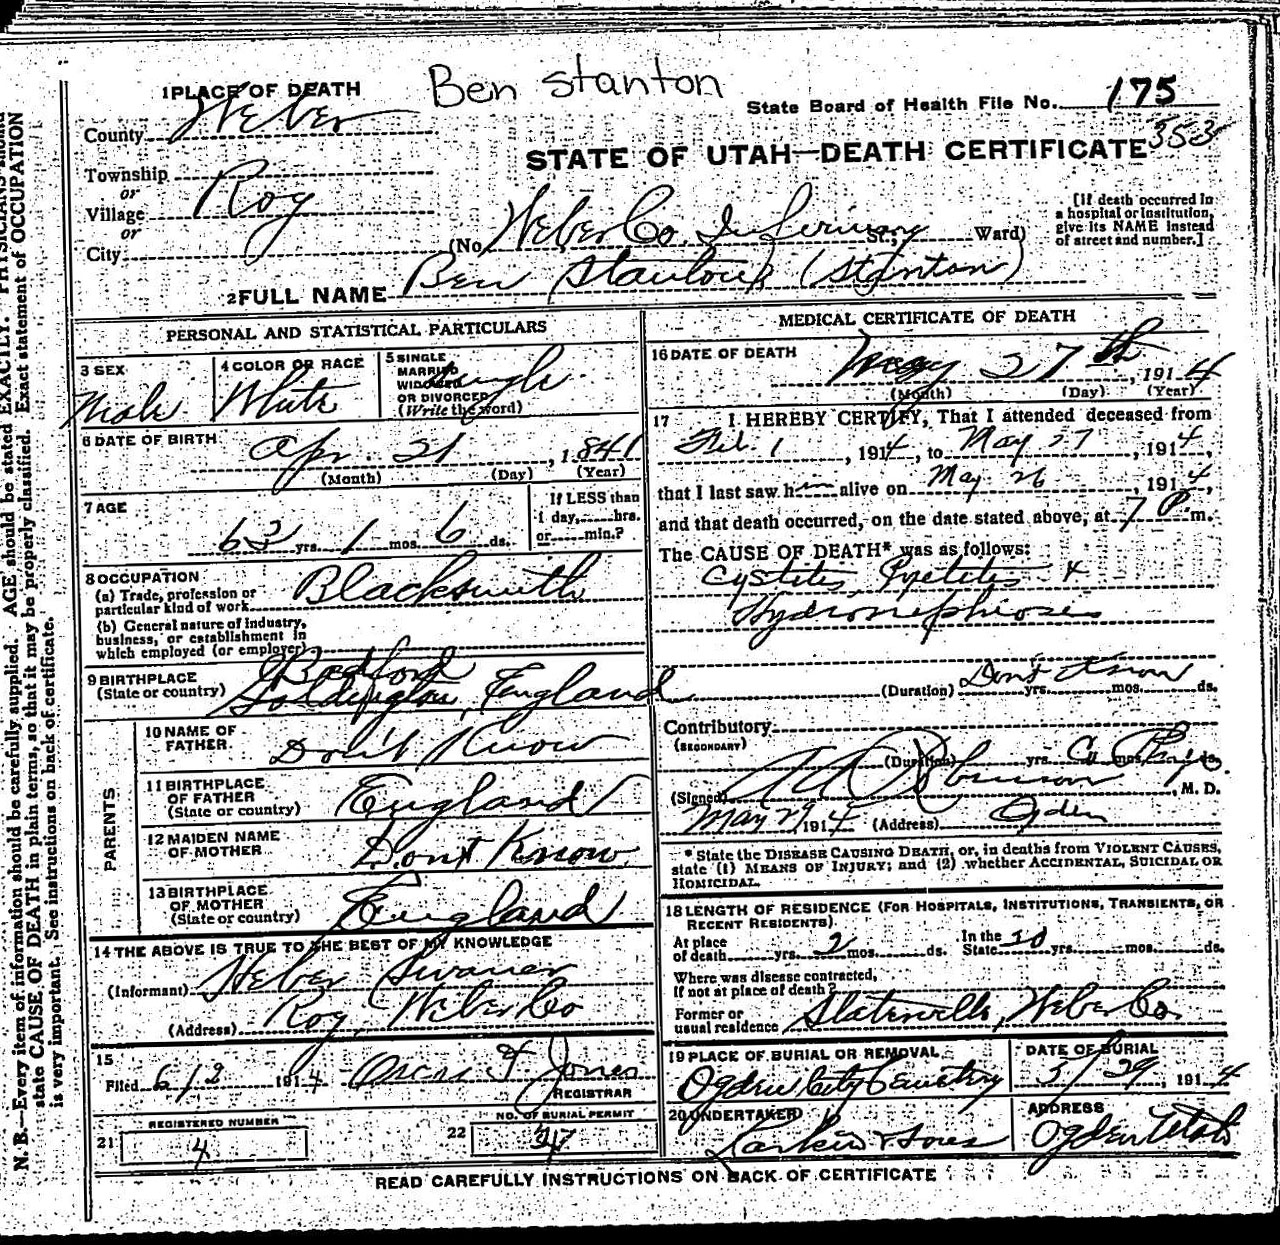 Ben Stanton
1 PLACE OF DEATH
State Board of Health File No. 175
353
County Weber
STATE OF UTAH—DEATH CERTIFICATE
Township
or
Village Roy
or
City
(No. Weber Co. Infirmary St.; Ward)
[If death occurred in
a hospital or institution,
give its NAME instead
of street and number.]
2 FULL NAME Ben (Stanton)
PERSONAL AND STATISTICAL PARTICULARS
3 SEX
Male
4 COLOR OR RACE
White
5 SINGLE
MARRIED
WIDOWED
OR DIVORCED
(Write the word)
Single
6 DATE OF BIRTH
Apr. 21, 1841
(Month) (Day) (Year)
7 AGE
63 yrs. 1 mos. 6 ds.
If LESS than
1 day, hrs.
or min.?
8 OCCUPATION
(a) Trade, profession or
particular kind of work Blacksmith
(b) General nature of industry,
business, or establishment in
which employed (or employer)
9 BIRTHPLACE
(State or country)
Bedford
England
PARENTS
10 NAME OF
FATHER
Don't Know
11 BIRTHPLACE
OF FATHER
(State or country)
England
12 MAIDEN NAME
OF MOTHER
Don't Know
13 BIRTHPLACE
OF MOTHER
(State or country)
England
14 THE ABOVE IS TRUE TO THE BEST OF MY KNOWLEDGE
(Informant) Heber
(Address) Roy, Weber Co
15
Filed 6/2 1914 Oscar F Jones
REGISTRAR
REGISTERED NUMBER
21 4
NO. OF BURIAL PERMIT
22 47
MEDICAL CERTIFICATE OF DEATH
16 DATE OF DEATH
May 27th, 1914
(Month) (Day) (Year)
17 I HEREBY CERTIFY, That I attended deceased from
Feb. 1, 1914, to May 27, 1914,
that I last saw him alive on May 26, 1914,
and that death occurred, on the date stated above, at 7 P.m.
The CAUSE OF DEATH* was as follows:
Cystitis, Pyelitis &
Hydronephrosis
(Duration) Don't Know yrs. mos. ds.
Contributory
(SECONDARY)
(Duration) yrs. mos. ds.
Co Phys.
(Signed) Robinson, M. D.
May 29 1914 (Address) Ogden
* State the DISEASE CAUSING DEATH, or, in deaths from VIOLENT CAUSES,
state (1) MEANS OF INJURY; and (2) whether ACCIDENTAL, SUICIDAL OR
HOMICIDAL.
18 LENGTH OF RESIDENCE (FOR HOSPITALS, INSTITUTIONS, TRANSIENTS, OR
RECENT RESIDENTS).
At place
of death yrs. 2 mos. ds.
In the
State 30 yrs. mos. ds.
Where was disease contracted,
if not at place of death?
Former or
usual residence Slaterville, Weber Co.
19 PLACE OF BURIAL OR REMOVAL
Ogden City Cemetery
DATE OF BURIAL
5/29, 1914
20 UNDERTAKER
Larkin & Sons
ADDRESS
Ogden Utah
READ CAREFULLY INSTRUCTIONS ON BACK OF CERTIFICATE
N. B.—Every item of information should be carefully supplied. AGE should be stated EXACTLY. PHYSICIANS should
state CAUSE OF DEATH in plain terms, so that it may be properly classified. Exact statement of OCCUPATION
is very important. See instructions on back of certificate.